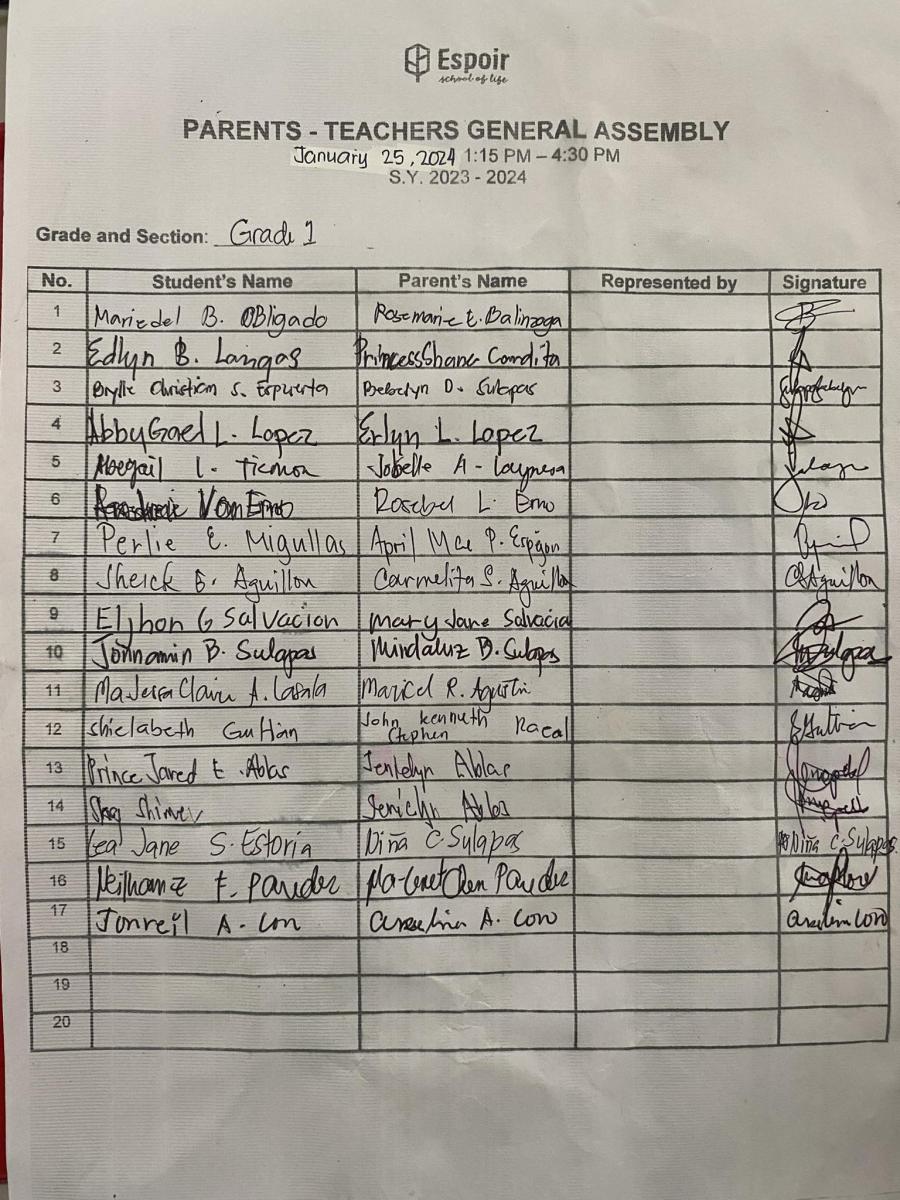 Espoir
school of life
PARENTS - TEACHERS GENERAL ASSEMBLY
January 25, 2024 1:15 PM – 4:30 PM
S.Y. 2023 - 2024
Grade and Section: Grade 1
No. Student's Name Parent's Name Represented by Signature
1 Mariedel B. OBligado Rosemarie E. Balinzoga
2 Edlyn B. Langas Princess Shane Condita
3 Brylle Christian S. Espuerta Bebelyn D. Sulapas
4 Abby Gael L. Lopez Erlyn L. Lopez
5 Abegail L. Ticmon Jobelle A -
6 Von Erno Rosebel L. Erno
7 Perlie E. Migullas April Mae P. Espigon
8 Sherck B. Aguillon Carmelita S. Aguillon CSAguillon
9 Eljhon G Salvacion mary Jane Salvacia
10 Jonnamin B. Sulapas Mindaluz B. Sulapas
11 Ma Jessa Claire A. Casala Maricel R. Agustin
12 shielabeth Guttian John kenneth Stephen Racal
13 Prince Jared E. Ablas Jentelyn Ablas
14 Shimer Jenielyn Ablas
15 Lea Jane S. Estoria Diña C. Sulapas Diña C. Sulapas
16 F. Pander Pander
17 Jonreil A. Con A. Con
18
19
20